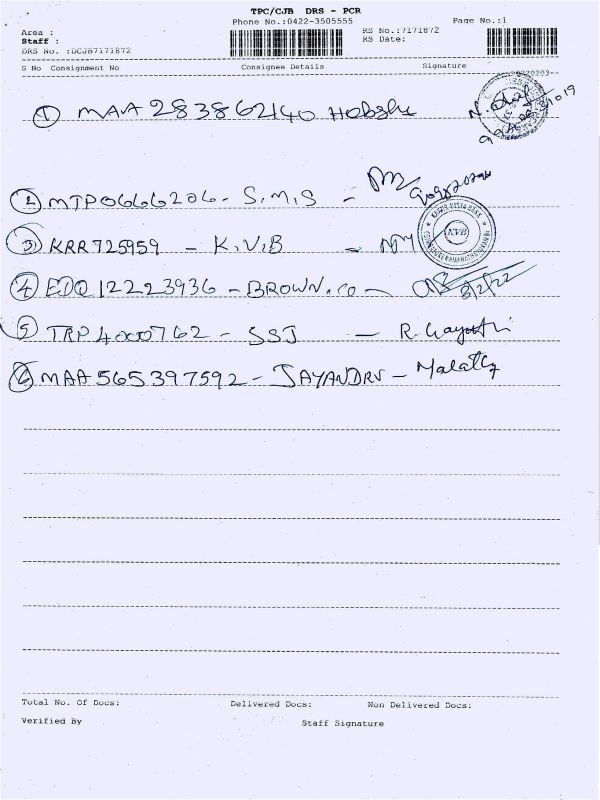 TPC/CJB DRS - PCR
Phone No.:0422-3505555
Page No.:1
Area :
Staff :
DRS No. :DCJB7171872
RS No.:7171872
RS Date:
S No Consignment No Consignee Details Signature
1 MAA 283862140
2 MTP0666206 - S.M.S -
3 KRR725959 - K.V.B -
KARUR VYSYA BANK
KVB
4 EDQ12223936 - BROWN.CO - 3/2/22
5 TRP4000762 - SSJ - R. Gayatri
6 MAA565397592 - JAYANDRV - Malathy
Total No. Of Docs: Delivered Docs: Non Delivered Docs:
Verified By Staff Signature